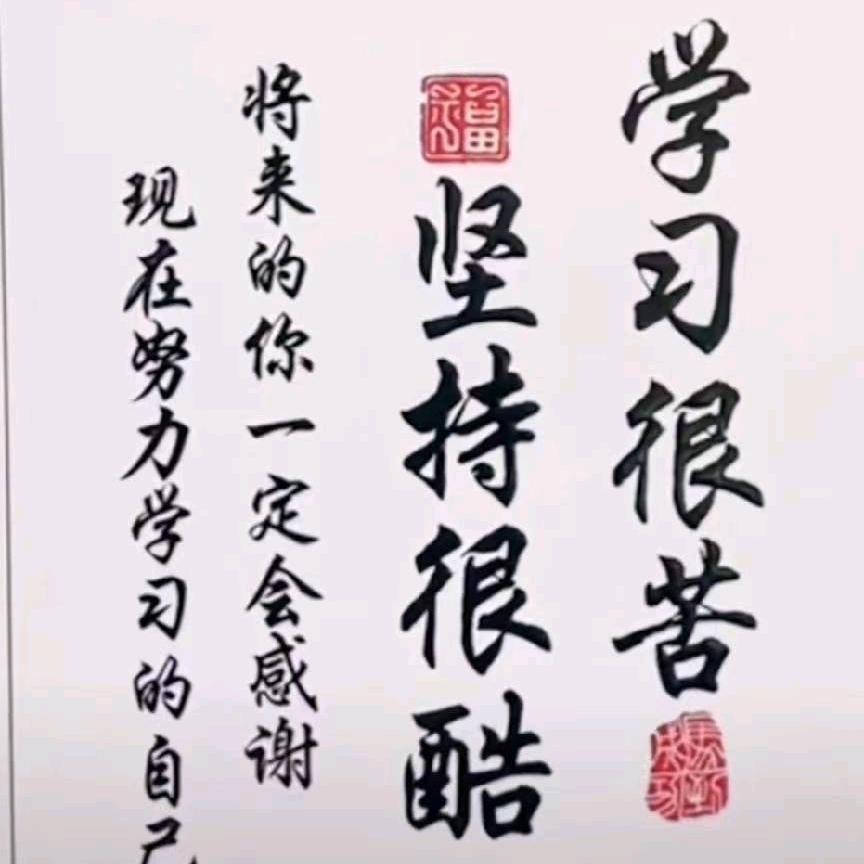 学习很苦
坚持很酷
将来的你一定会感谢
现在努力学习的自己
福